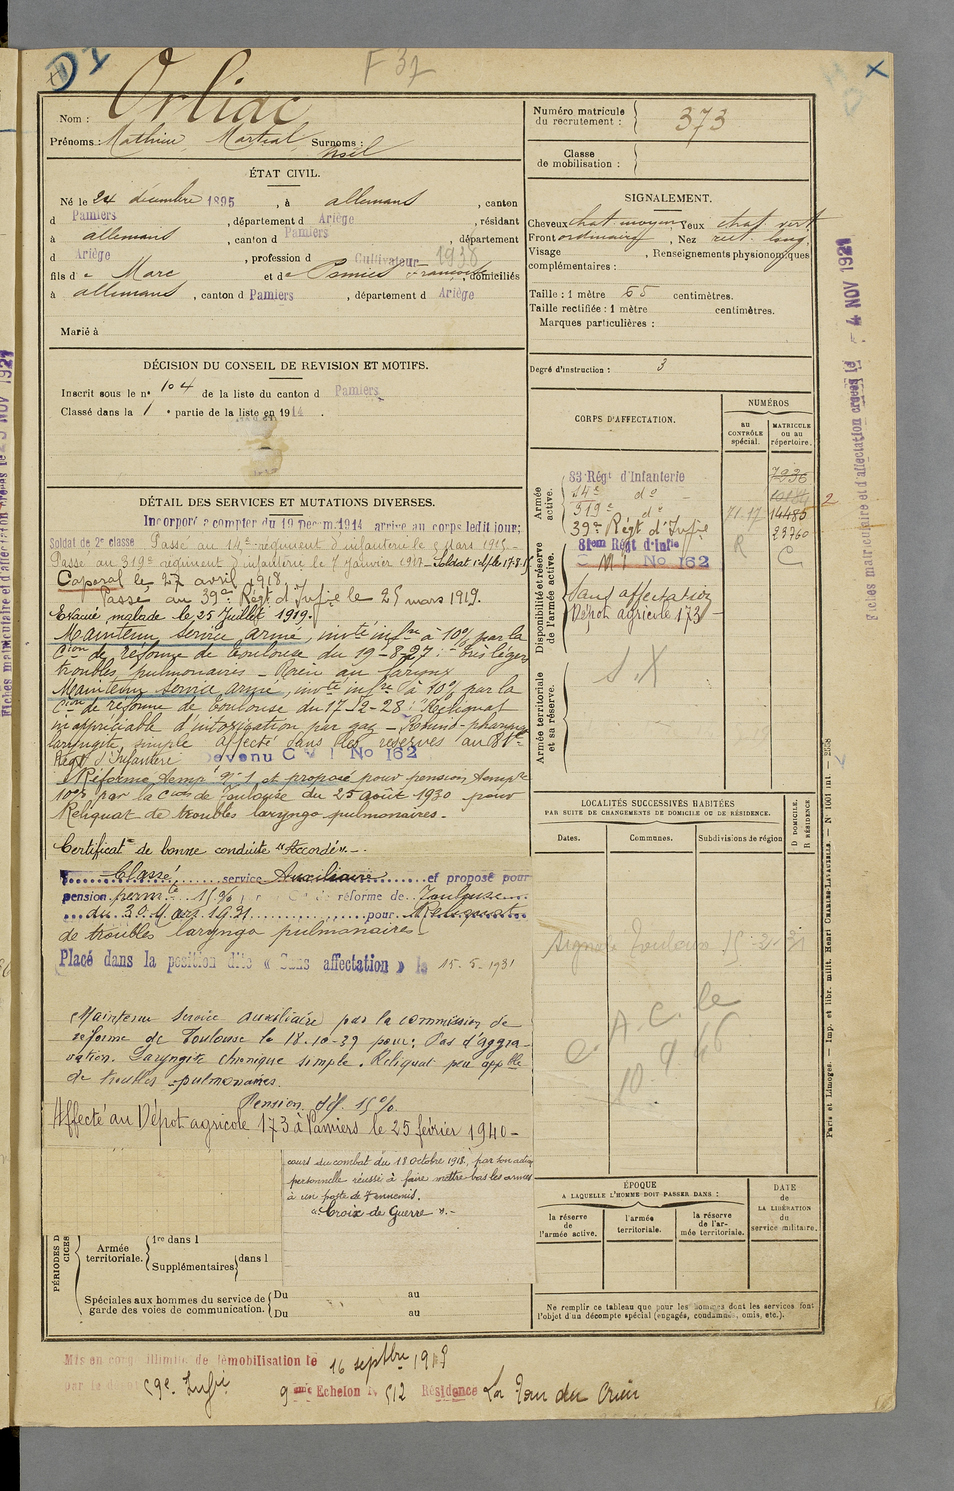 F 37
Nom : Orliac
Prénoms : Mathieu, Martial, Noël Surnoms :
Numéro matricule du recrutement : 373
Classe de mobilisation :
ÉTAT CIVIL.
Né le 24 décembre 1895, à allemans, canton
d Pamiers, département d Ariège, résidant
à allemans, canton d Pamiers, département
d Ariège, profession d Cultivateur 1938
fils de Marc et de Françoise, domiciliés
à allemans, canton d Pamiers, département d Ariège
Marié à
SIGNALEMENT.
Cheveux chat moyen, Yeux chat vert
Front ordinaire, Nez rect. long.
Visage , Renseignements physionomiques
complémentaires :
Taille : 1 mètre 65 centimètres.
Taille rectifiée : 1 mètre centimètres.
Marques particulières :
Degré d'instruction : 3
DÉCISION DU CONSEIL DE REVISION ET MOTIFS.
Inscrit sous le n° 104 de la liste du canton d Pamiers
Classé dans la 1e partie de la liste en 1914.
DÉTAIL DES SERVICES ET MUTATIONS DIVERSES.
Incorporé à compter du 19 Décem. 1914 arrivé au corps ledit jour;
Soldat de 2e classe Passé au 14e régiment d'infanterie le Mars 1915
Passé au 319e régiment d'infanterie le 7 Janvier 1917 - Soldat
Caporal le 27 avril 1918
Passé au 39e Régt d'Infie le 25 mars 1919.
Evacué malade le 25 Juillet 1919.
Maintenu service armé, invté infre à 10% par la
Cion de réforme de Toulouse du 19-8-27 : très légers
troubles pulmonaires - Rien au larynx
Maintenu service armé, invté infre à 10% par la
Cion de réforme de Toulouse du 17-2-28 : Reliquat
inappréciable d'intoxication par gaz - Rhino-pharyn
laryngite simple affecté dans les réserves au 81e
Régt d'Infanterie devenu C M I No 162
Réformé tempre No 1 et proposé pour pension tempre
10% par la Cion de Toulouse du 25 août 1930 pour
Reliquat de troubles laryngo pulmonaires.
Certificat de bonne conduite "Accordé".
Classé service Auxiliaire et proposé pour
pension permte 15% réforme de Toulouse
du 30 Mars 1931 pour Reliquat
de troubles laryngo pulmonaires
Placé dans la position dite « Sans affectation » le 15.5.1931
Maintenu service auxiliaire par la commission de
réforme de Toulouse le 18.10-39 pour : Pas d'aggra-
vation. Laryngite chronique simple. Reliquat peu appble
de troubles pulmonaires.
Pension déf. 15%
Affecté au Dépot agricole 173 à Pamiers le 25 février 1940 -
cours du combat du 18 octobre 1918, par son action
personnelle réussi à faire mettre bas les armes
à un poste de 7 ennemis.
"Croix de Guerre".-
PÉRIODES D
CICES
Armée territoriale. 1re dans l
Supplémentaires dans l
Spéciales aux hommes du service de garde des voies de communication. Du au
Du au
CORPS D'AFFECTATION.
NUMÉROS
au CONTRÔLE spécial.
MATRICULE ou au répertoire.
Armée active.
83 Régt d'Infanterie 7936
14e do
319e do 71.17 14485 2
39e Régt d'Infie R 23760
Disponibilité et réserve de l'armée active.
81em Régt d'Infie C
C M I No 162
Sans affectation
Dépot agricole 173
Armée territoriale et sa réserve.
S.X
LOCALITÉS SUCCESSIVES HABITÉES
PAR SUITE DE CHANGEMENTS DE DOMICILE OU DE RÉSIDENCE.
D DOMICILE.
R RÉSIDENCE
Dates.
Communes.
Subdivisions de région
Signalé Toulouse
C. A. C. le
10. 9 46
ÉPOQUE
A LAQUELLE L'HOMME DOIT PASSER DANS :
la réserve de l'armée active.
l'armée territoriale.
la réserve de l'armée territoriale.
DATE de LA LIBÉRATION du service militaire.
Ne remplir ce tableau que pour les hommes dont les services font
l'objet d'un décompte spécial (engagés, condamnés, omis, etc.).
Mis en congé illimité de démobilisation le 16 septbre 1919
par le dépôt 59e Infie
9ème Echelon N° 512 Résidence La Tour du Crieu
Fiches matriculaire et d'affectation créées le 4 NOV 1921
Paris et Limoges. — Imp. et libr. milit. Henri CHARLES-LAVAUZELLE. — N° 1001 int. — 2558